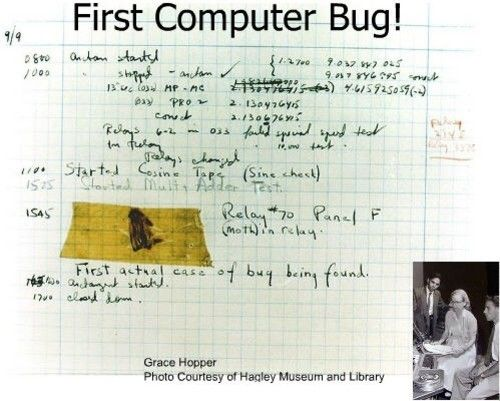 First Computer Bug!
9/9
0800 Antan started
1000 " stopped - antan ✓ { 1.2700 9.037 847 025
9.037 846 995 correct
13"uc (032) MP - MC 2.130476415 (-3) 4.615925059(-2)
(033) PRO 2 2.130476415
correct 2.130676415
Relays 6-2 in 033 failed special speed test
in Relay " 10.000 test .
Relay
2145
Relay 3370
Relays changed
1100 Started Cosine Tape (Sine check)
1525 Started Mult+ Adder Test.
1545 Relay #70 Panel F
(moth) in relay.
First actual case of bug being found.
1630 antangent started.
1700 closed down.
Grace Hopper
Photo Courtesy of Hagley Museum and Library